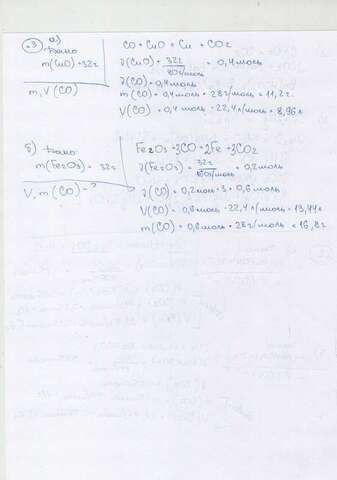 №3 а)
Дано
m(CuO) = 32г
m, V (CO)
CO + CuO = Cu + CO2
ν(CuO) = 32г / 80г/моль = 0,4 моль
ν(CO) = 0,4 моль
m(CO) = 0,4 моль · 28г/моль = 11,2г
V(CO) = 0,4 моль · 22,4 л/моль = 8,96 л
б) Дано
m(Fe2O3) = 32г
V, m (CO) = ?
Fe2O3 + 3CO = 2Fe + 3CO2
ν(Fe2O3) = 32г / 160г/моль = 0,2 моль
ν(CO) = 0,2 моль · 3 = 0,6 моль
V(CO) = 0,6 моль · 22,4 л/моль = 13,44 л
m(CO) = 0,6 моль · 28г/моль = 16,8г